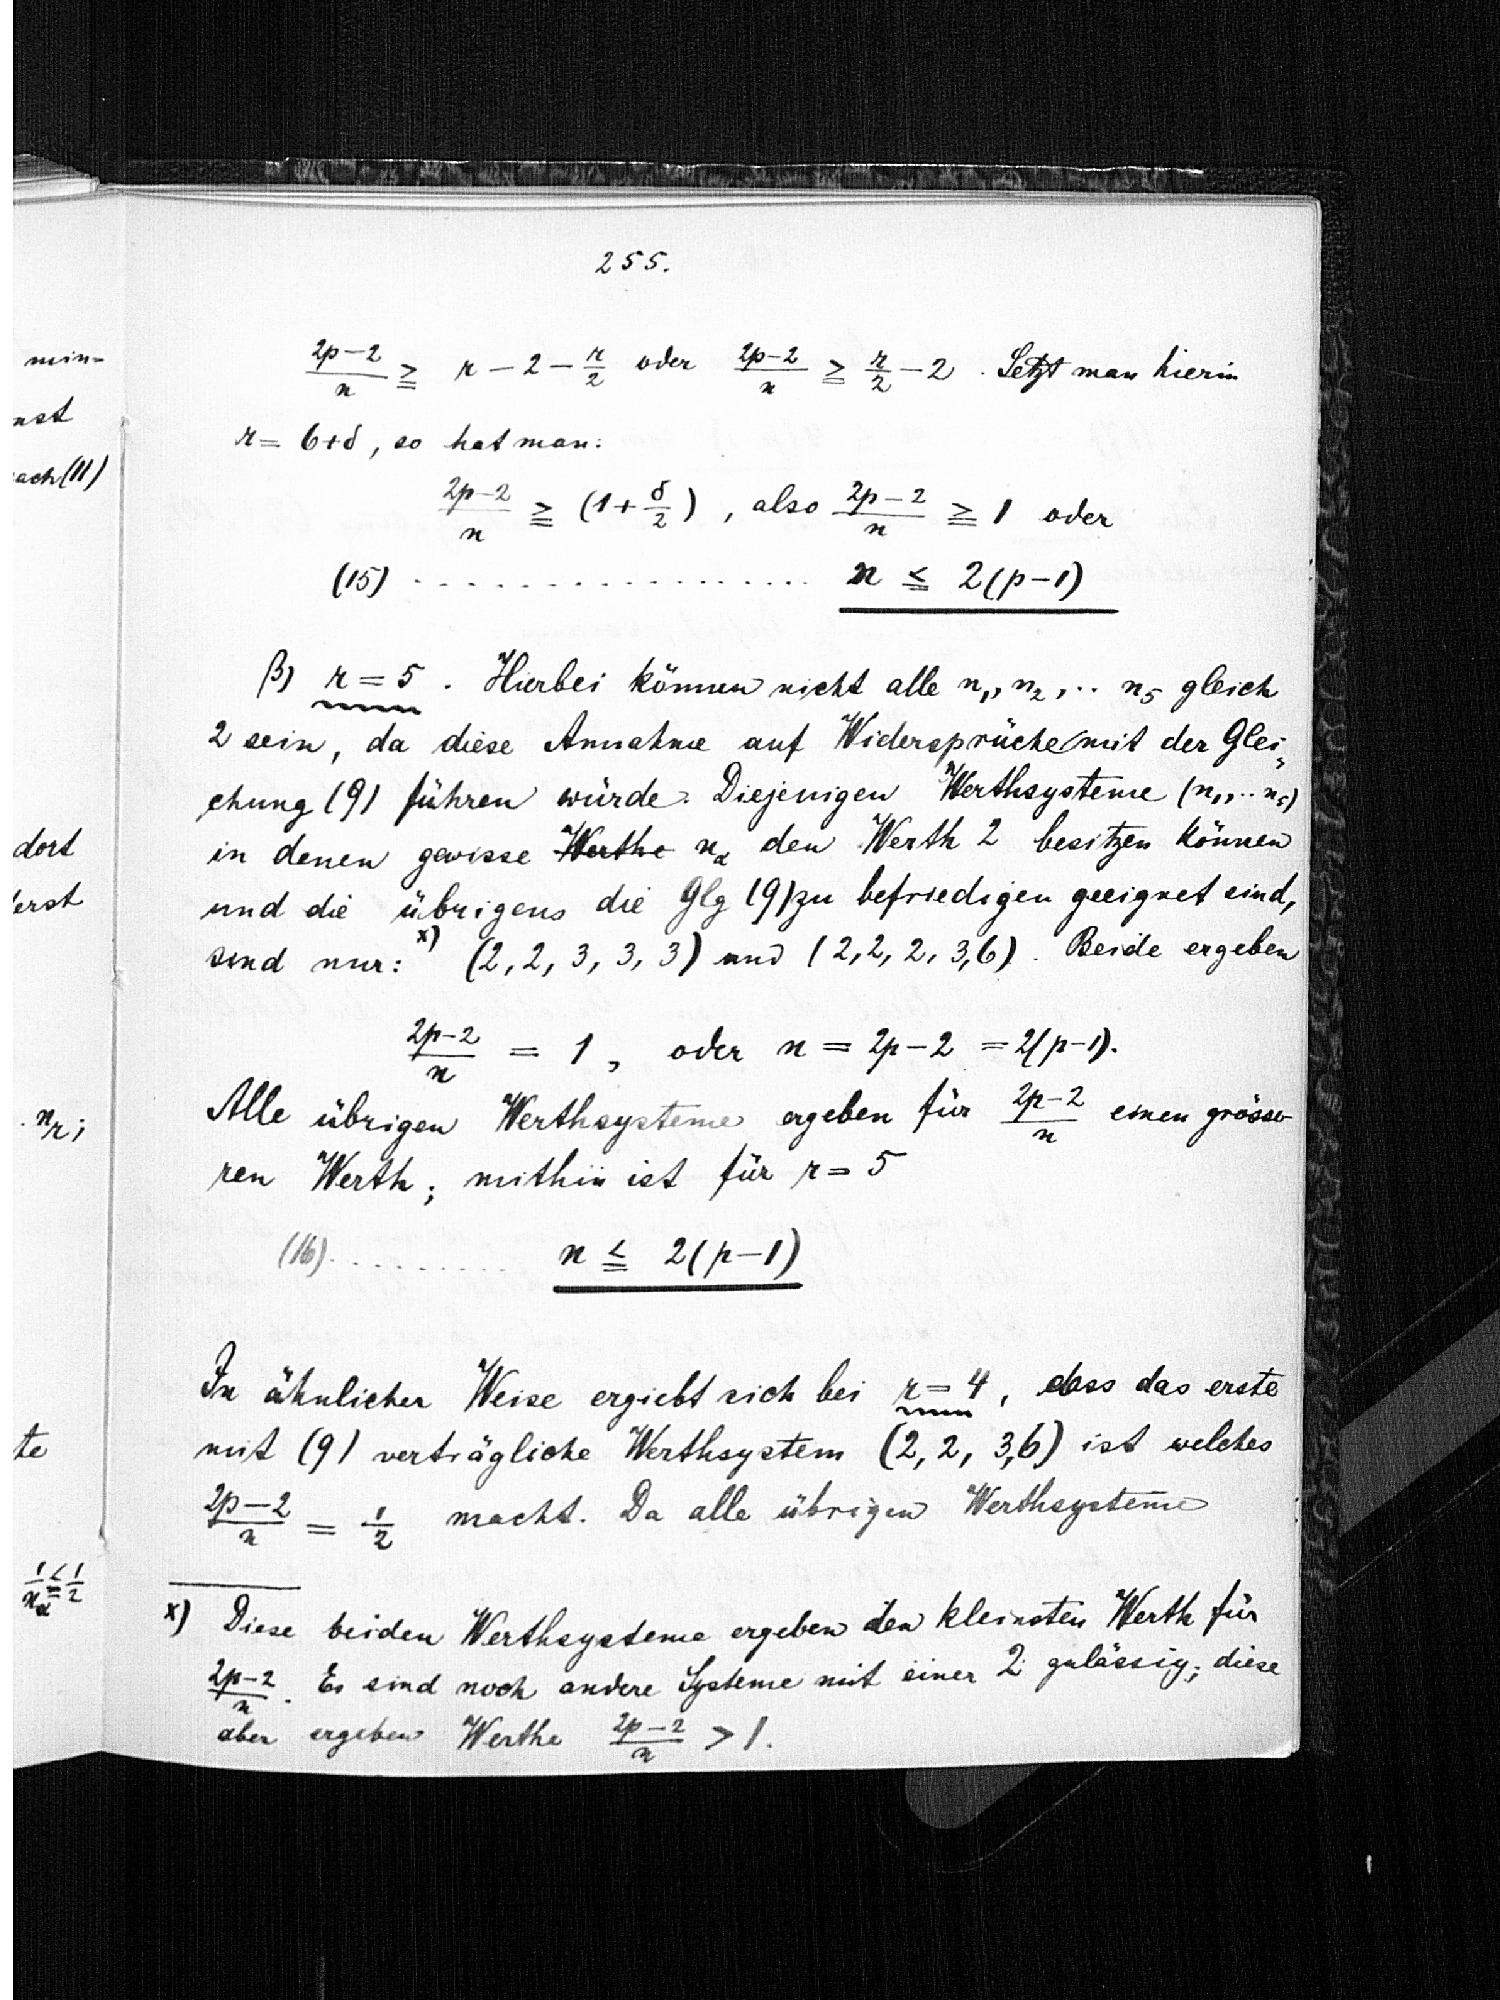 255.
(2p-2)/n ≧ r - 2 - r/2 oder (2p-2)/n ≧ r/2 - 2. Setzt man hierin
r = 6+δ, so hat man:
(2p-2)/n ≧ (1+δ/2), also (2p-2)/n ≧ 1 oder
(15) .................. n ≦ 2(p-1)
β) r = 5. Hierbei können nicht alle n₁, n₂, .. n₅ gleich
2 sein, da diese Annahme auf Widersprüche mit der Glei-
chung (9) führen würde. Diejenigen Werthsysteme (n₁, .. n₅)
in denen gewisse Werthe n_α den Werth 2 besitzen können
und die übrigens die Glg (9) zu befriedigen geeignet sind,
sind nur: x) (2, 2, 3, 3, 3) und (2, 2, 2, 3, 6). Beide ergeben
(2p-2)/n = 1, oder n = 2p-2 = 2(p-1).
Alle übrigen Werthsysteme ergeben für (2p-2)/n einen grösse-
ren Werth; mithin ist für r = 5
(16) ......... n ≦ 2(p-1)
In ähnlicher Weise ergiebt sich bei r = 4, dass das erste
mit (9) verträgliche Werthsystem (2, 2, 3, 6) ist welches
(2p-2)/n = 1/2 macht. Da alle übrigen Werthsysteme
x) Diese beiden Werthsysteme ergeben den kleinsten Werth für
(2p-2)/n. Es sind noch andere Systeme mit einer 2 zulässig; diese
aber ergeben Werthe (2p-2)/n > 1.
min-
nst
ach (11)
dort
erst
. n_r;
te
1/n_α ≦ 1/2